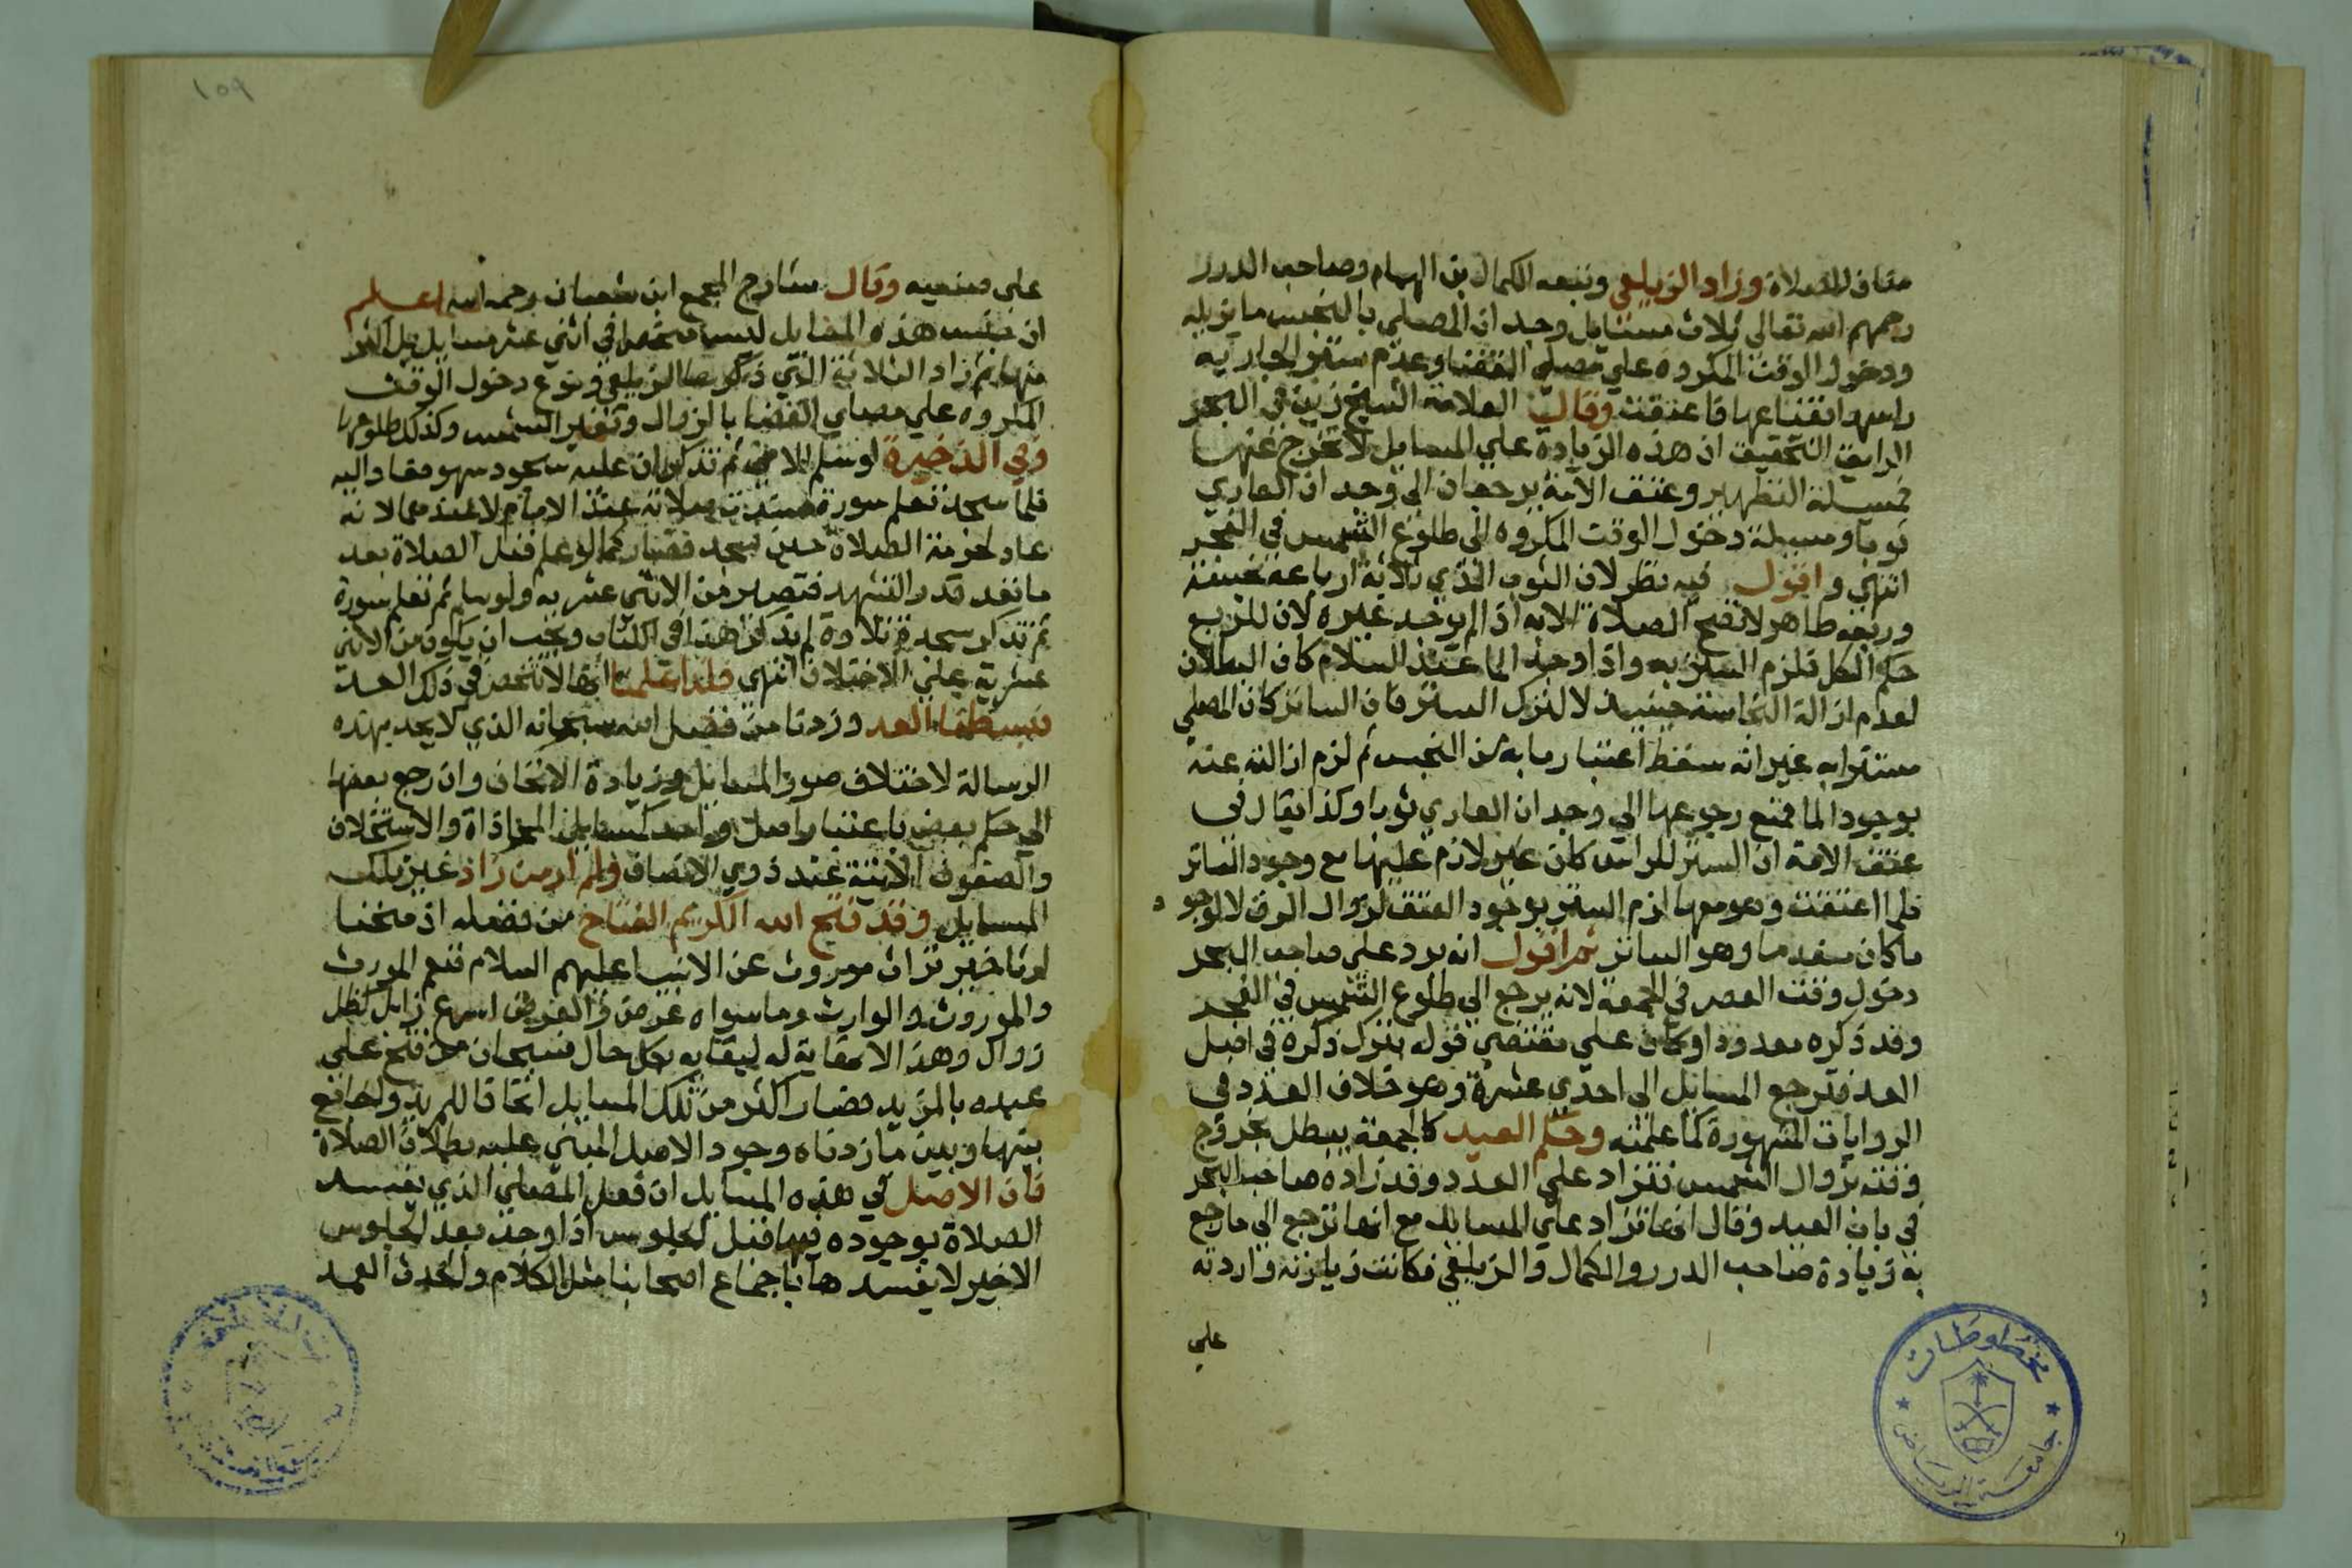 مناف للصلاة وزاد الزيلعي وتبعه الكمال بن الهمام وصاحب الدرر
رحمهم الله تعالى ثلاث مسايل وجدان المصلي بالنجس ما يزيله
ودخول الوقت المكروه علي مصلي القضا وعدم ستر الجارية
راسها قناعها فاعتقت وقال العلامة الشيخ زين في البحر
الرايق التحقيق ان هذه الزيادة علي المسايل لا تخرج عنها
فمسيلة التطهير وعتق الامة يرجعان الي وجدان العاري
ثوبا ومسيلة دخول الوقت المكروه الي طلوع الشمس في الفجر
انتهي واقول فيه نظر لان الثوب الذي ثلاثة ارباعه نجسة
وربعه طاهر لا تصح الصلاة الا به اذا لم يوجد غيره لان للربع
حكم الكل فلزم الستر به واذا وجد الما عند السلام كان البطلان
لعدم ازالة النجاسة حينيذ لا لترك الستر فان الساتر كان المصلي
مستترا به غير انه سقط اعتبار ما به من النجس ثم لزم ازالته عنه
بوجود الما فمنع رجوعها الي وجدان العاري ثوبا وكذا يقال في
عتق الامة ان الستر للراس كان غير لازم عليها مع وجود الساتر
فلما اعتقت وهو معها لزم الستر بوجود العتق لزوال الرق لا لوجود
ما كان منعدما وهو الساتر ثم اقول انه يرد علي صاحب البحر
دخول وقت العصر في الجمعة لانه يرجع الي طلوع الشمس في الفجر
وقد ذكره معدودا وكان علي مقتضي قوله يترك ذكره في اصل
العد فترجع المسايل الي احدي عشرة وهو خلاف العدد في
الروايات المشهورة كما علمته وحكم العيد كالجمعة يبطل بخروج
وقته بزوال الشمس فتزاد علي العدد وقد زاده صاحب البحر
في باب العيد وقال انها تزاد علي المسايل مع انها ترجع الي ما رجع
به زيادة صاحب الدرر والكمال والزيلعي فكانت زيادته واردته
علي
١٥٩
علي صنعيه وقال شارح المجمع ابن شعبان رحمه الله اعلم
ان جنس هذه المسايل ليس منحصرا في اثني عشر مسايل بل اكثر
منها ثم زاد الثلاثة التي ذكرها الزيلعي ونوع دخول الوقت
المكروه علي مصلي القضا بالزوال وتغير الشمس وكذلك طلوعها
وفي الذخيرة لو سلم الامي ثم تذكر ان عليه سجود سهو فعاد اليه
فلما سجد تعلم سورة فسدت صلاته عند الامام لا عندهما لانه
عاد لحرمة الصلاة حين سجد فصار كما لو علم قبل الصلاة بعد
ما قعد قدر التشهد فتصير من الاثني عشرية ولو سلم ثم تعلم سورة
ثم تذكر سجدة تلاوة لم يذكر هذا في الكتاب ويجب ان يكون من الاثني
عشرية علي الاختلاف انتهي فلما علمنا انها لا تنحصر في ذلك العد
بسطنا العد وزدنا من فضل الله سبحانه الذي لا يحد بهذه
الرسالة لاختلاف صور المسايل وزيادة الاتحاف وان رجع بعضها
الي حكم بعض باعتبار اصل واحد كمسايل المحاذاة والاستخلاف
والصفوف الاتية عند ذوي الانصاف ولم ار من زاد غير تلك
المسايل وقد فتح الله الكريم الفتاح من فضله اذ منحنا
ارثا خير تراث موروث عن الانبيا عليهم السلام فنعم المورث
والموروث والوارث وما سواه عرض والعرض اسرع زايل كظل
زوال وهذا لا بقاية له ليقايه بكل حال فسبحان من فتح علي
عبده بالمزيد فصار اكثر من تلك المسايل اتحافا للمريد والجامع
بينها وبين ما زدناه وجود الاصل المبني عليه بطلان الصلاة
فان الاصل في هذه المسايل ان فعل المصلي الذي يفسد
الصلاة بوجوده فيها قبل الجلوس اذا وجد بعد الجلوس
الاخير لا يفسدها باجماع اصحابنا مثل الكلام والحدث العمد
مخطوطات
جامعة الرياض